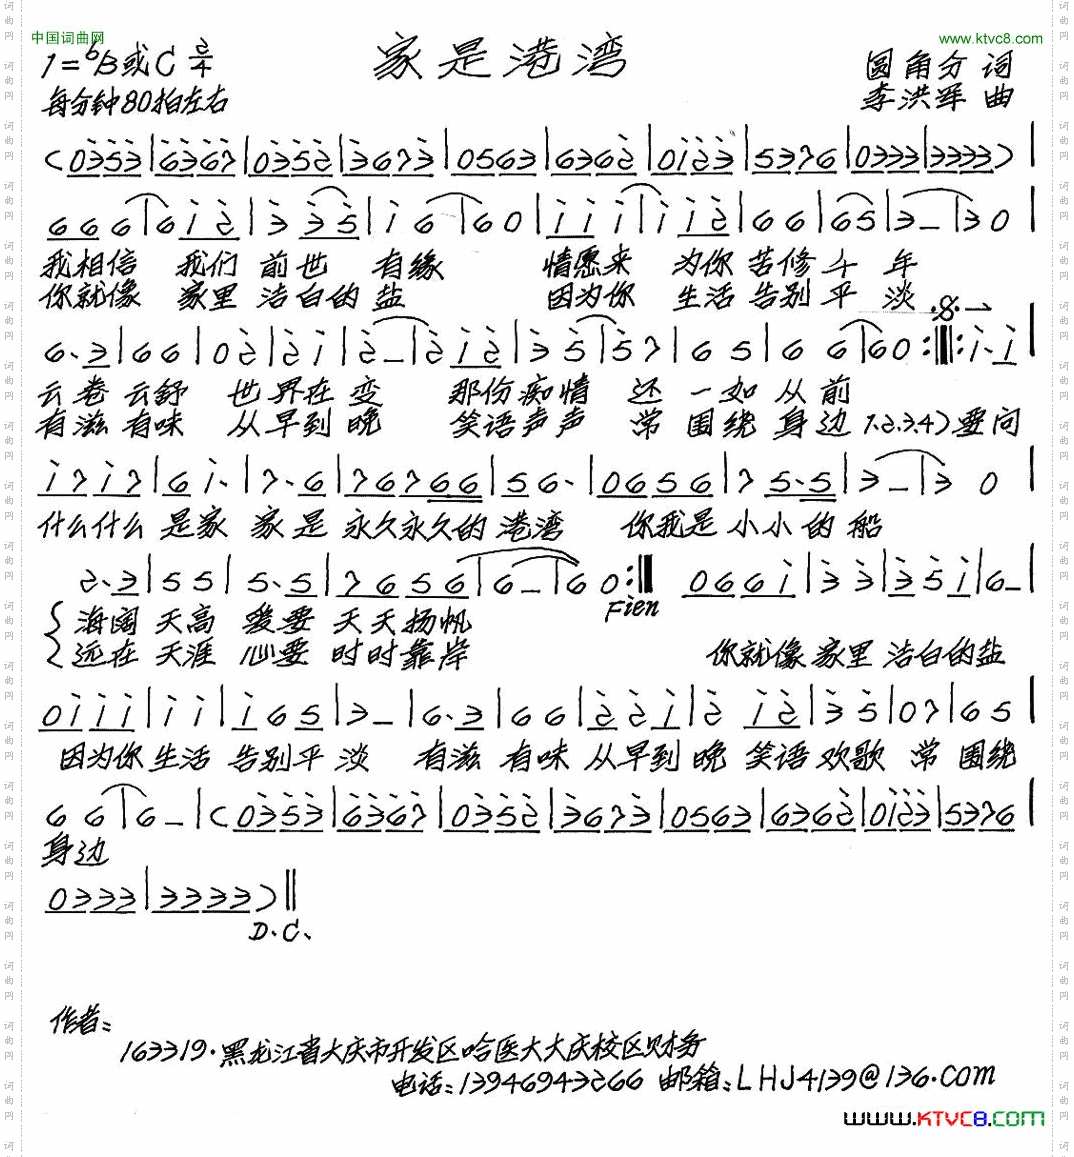 中国词曲网
www.ktvc8.com
1=ᵇB或C 2/4
家是港湾
圆角分 词
每分钟80拍左右
李洪军 曲
(0353|6367|0352|3673|0563|6362|0123|5376|0333|3333)|
666|612|335|16|60|111|112|66|65|3–|30|
我相信 我们 前世 有缘 情愿来 为你 苦修 千 年
你就像 家里 洁白的 盐 因为你 生活 告别 平 淡
6.3|66|02|21|2–|212|35|57|65|66|60:‖:1.1|
云卷 云舒 世界在 变 那份痴情 还 一如 从 前
有滋 有味 从早到 晚 笑语声声 常 围绕 身 边 1.2.3.4)要问
1717|61.|7.6|76766|56.|0656|75.5|3–|30|
什么什么 是家 家是 永久永久的 港湾 你我是 小小 的 船
2.3|55|5.5|7656|6–|60:‖ 0661|33|351|6–|
Fien
海阔 天高 爱要 天天扬帆
远在 天涯 心要 时时靠岸 你就像 家里 洁白的盐
0111|11|165|3–|6.3|66|221|2 12|35|07|65|
因为你 生活 告别平 淡 有滋 有味 从早到 晚 笑语 欢歌 常 围绕
66|6–|(0353|6367|0352|3673|0563|6362|0123|5376|
身边
0333|3333)‖
D.C.
作者:
163319.黑龙江省大庆市开发区哈医大大庆校区财务
电话:13946943266 邮箱:LHJ4139@136.com
www.KTVC8.com